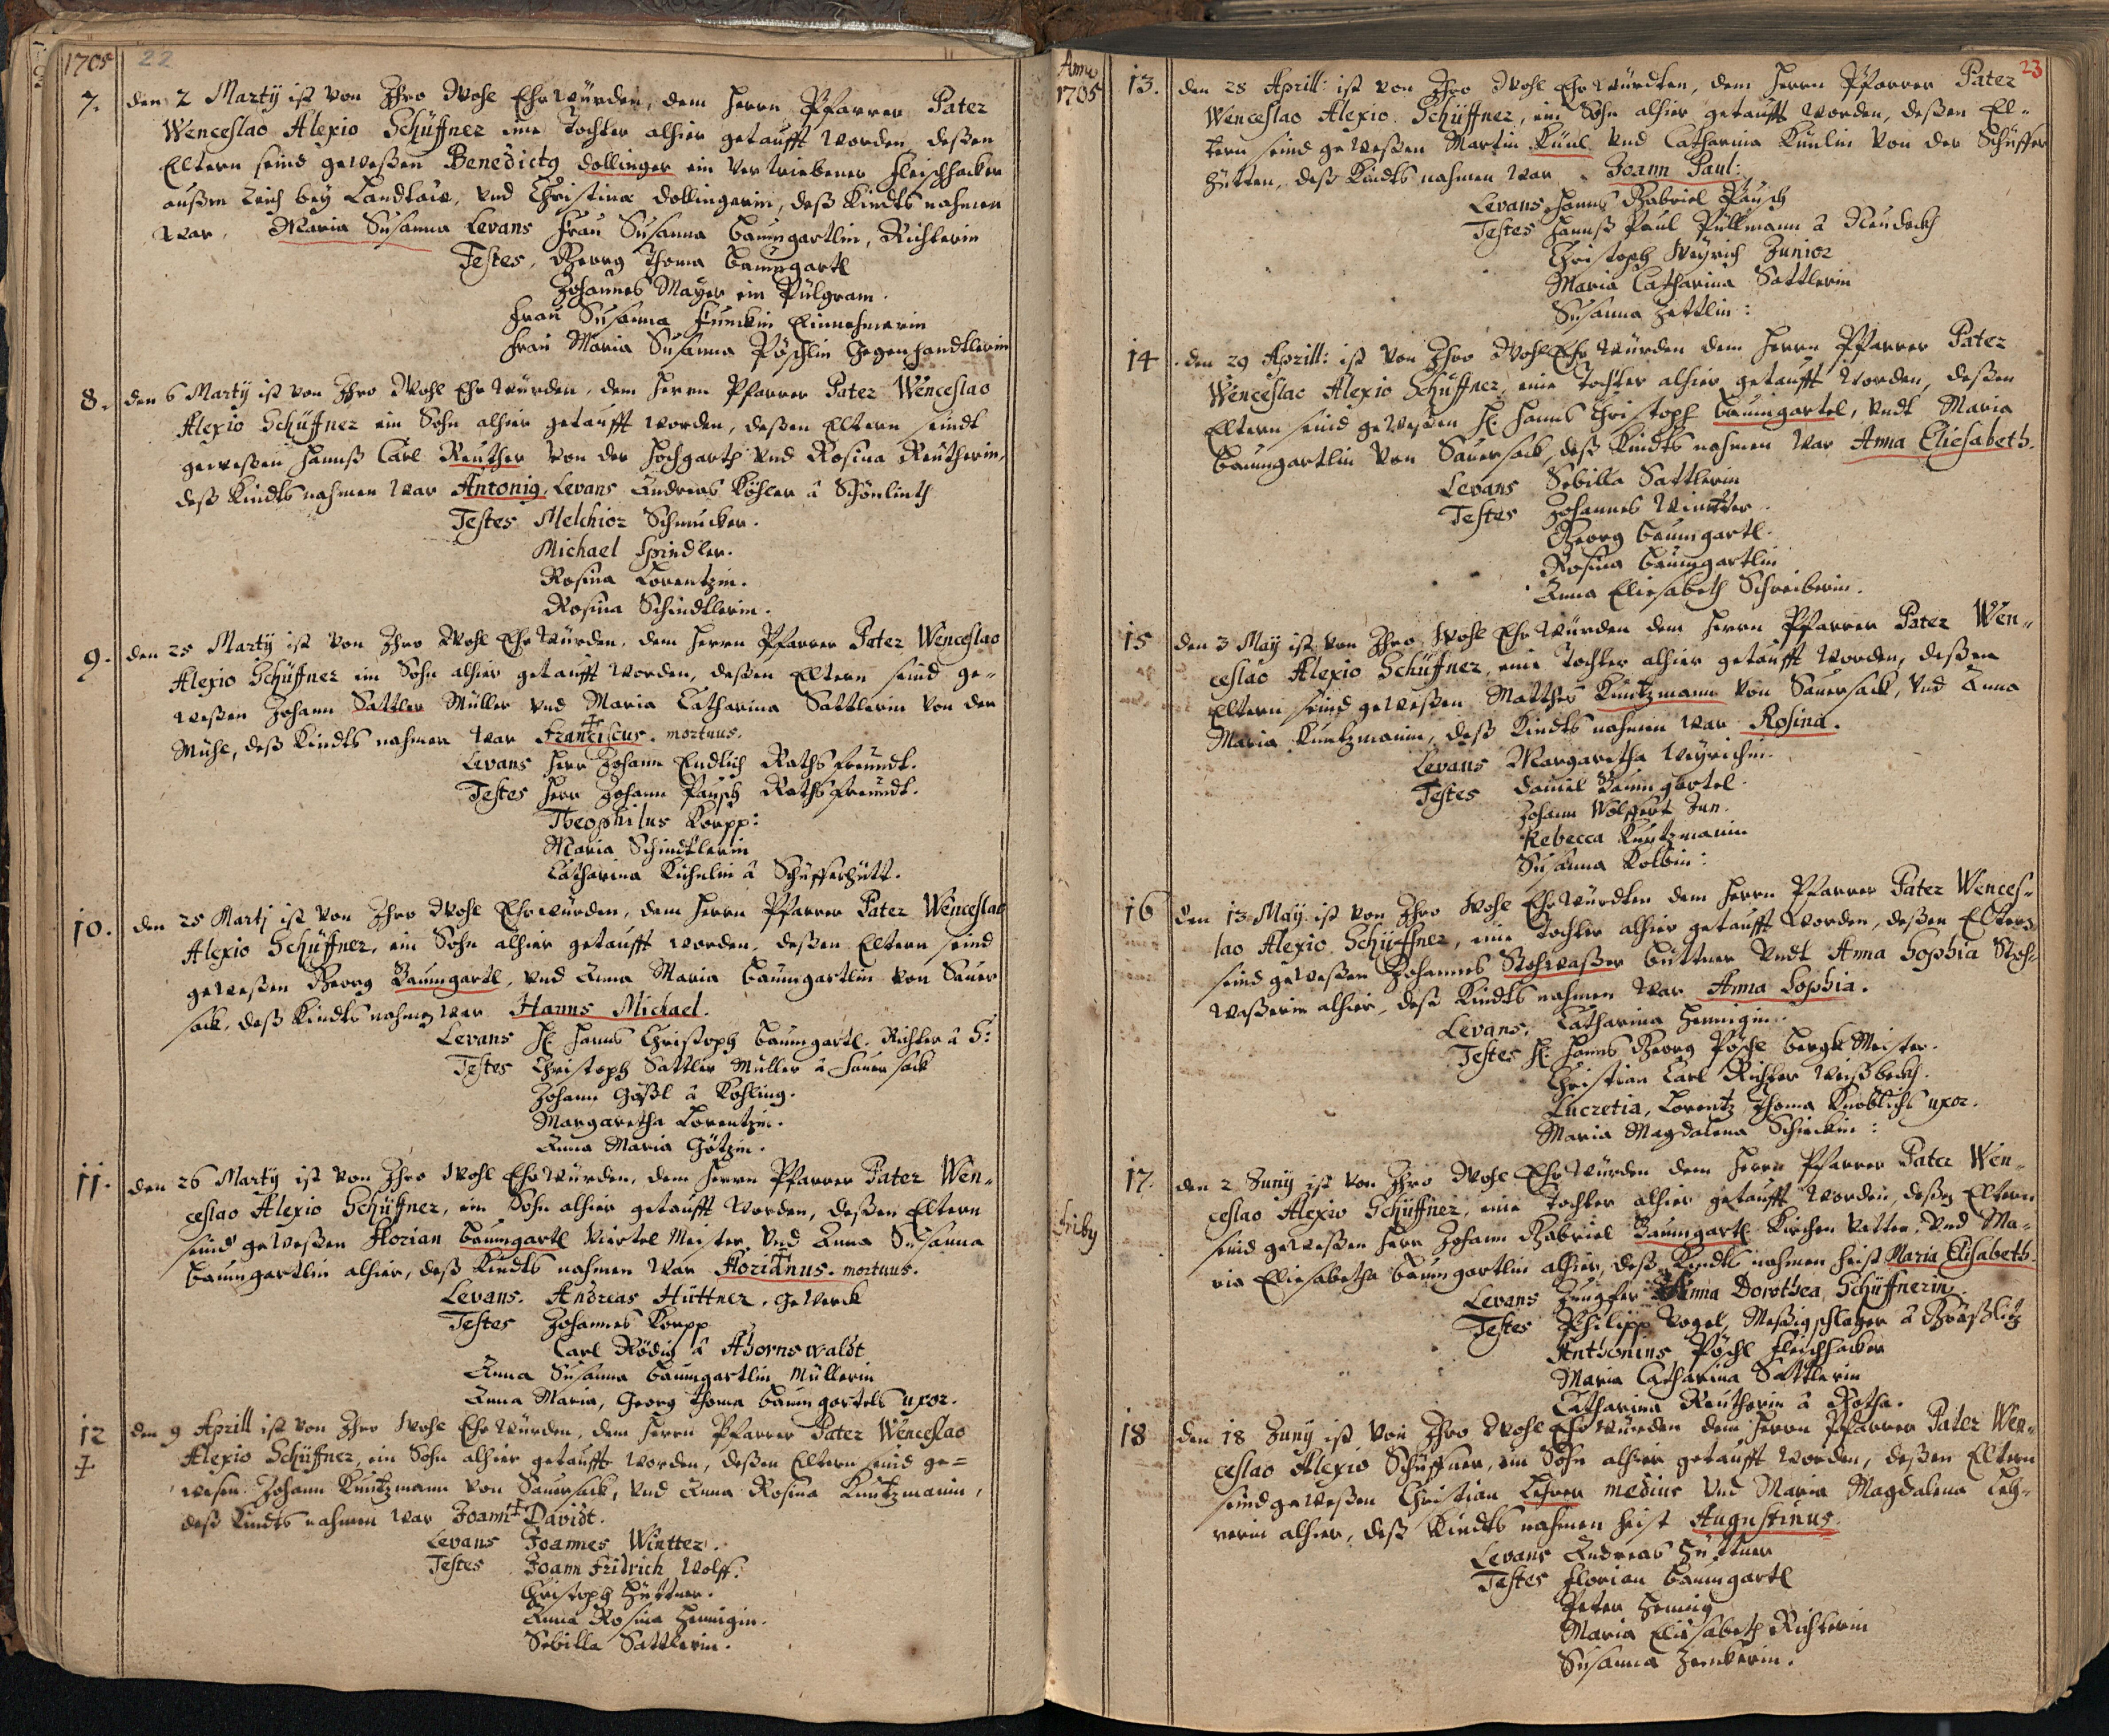 1705 22
7. den 2 Martÿ ist von Ihro Wohl Ehrwürden, dem Herrn Pfarrer Pater
Wenceslao Alexio Schüffner eine Tochter alhier getaufft worden, deßen
Eltern seind geweßen Benedictg dollinger ein vertriebener Fleischhacker
außen Teich beÿ Landtau, und Christina dollingerin, deß Kindts nahmen
war. Maria Susanna Levans Frau Susanna Baumgartlin, Richterin
Testes. Georg Thoma Baumgartl
Johannes Maÿer ein Pülgram.
Frau Susanna Funckin Einnehmerin
Frau Maria Susanna Pöschlin Gegenhandtlerin
8. den 6 Martÿ ist von Ihro Wohl Ehrwürden, dem Herrn Pfarrer Pater Wenceslao
Alexio Schüffner ein Sohn alhier getaufft worden, deßen Eltern seindt
geweßen Hannß Carl Reuther von der Hochgarth und Rosina Reutherin,
deß Kindts nahmen war Antonig, Levans Andreas Köhler â Schönlinth
Testes Melchior Schmucker.
Michael Spindler.
Rosina Lorentzin.
Rosina Schindtlerin.
9. den 25 Martÿ ist von Ihro Wohl Ehrwürden, dem Herrn Pfarrer Pater Wenceslao
Alexio Schüffner ein Sohn alhier getaufft worden, deßen Eltern seind ge-
weßen Johann Sattler Müller und Maria Catharina Sattlerin von der
Mühl, deß Kindts nahmen war Franciscus. mortuus.
Levans Herr Johann Endlich Rathsfreundt.
Testes Herr Johann Pausch Rathsfreundt.
Theophilus Korpp:
Maria Schindtlerin
Catharina Kühnlin â Schüfferhütt.
10. den 25 Martj ist von Ihro Wohl Ehrwürden, dem Herrn Pfarrer Pater Wenceslao
Alexio Schüffner, ein Sohn alhier getaufft worden, deßen Eltern seind
geweßen Georg Baumgartl, und Anna Maria Baumgartlin von Sauer
sack, deß Kindts nahmen war Hanns Michael.
Levans H: Hanns Christoph Baumgartl. Richter â S:
Testes Christoph Sattler Müller â Sauersack
Johann Gäßl â Kohling.
Margaretha Lorentzin.
Anna Maria Götzin.
11. den 26 Martÿ ist von Ihro Wohl Ehrwürden, dem Herrn Pfarrer Pater Wen-
ceslao Alexio Schüffner, ein Sohn alhier getaufft worden, deßen Eltern
seind geweßen Florian Baumgartl Viertel Meister, und Anna Susanna
Baumgartlin alhier, deß Kindts nahmen war Florianus. mortuus.
Levans. Andreas Hüttner, Gewerck
Testes Johannes Korpp
Carl Rödig â Ahornswaldt
Anna Susanna Baumgartlin Müllerin
Anna Maria, Georg Thoma Baumgartels uxor.
12 den 9 Aprill ist von Ihro Wohl Ehrwürden, dem Herrn Pfarrer Pater Wenceslao
Alexio Schüffner, ein Sohn alhier getaufft worden, deßen Eltern seind ge=
wesen Johann Kuntzmann von Sauersack, und Anna Rosina Kuntzmanin,
deß Kindts nahmen war Joann Davidt.
Levans Joannes Wintter.
Testes Joann Fridrich Wolff.
Christoph Hüttner.
Anna Rosina Hennigin.
Sebilla Sattlerin.
Anno 1705
23
13. den 28 Aprill: ist von Ihro Wohl Ehrwürdten, dem Herrn Pfarrer Pater
Wenceslao Alexio Schüffner, ein Sohn alhier getaufft worden, deßen El-
tern seind geweßen Martin Künl und Catharina Künlin von der Schüffer
hütten, deß Kindts nahmen war Joann Paul:
Levans Hannß Gabriel Pausch
Testes Hannß Paul Püllmann â Neudeck
Christoph Weÿrich Junior
Maria Catharina Sattlerin
Susanna Zettlin:
14. den 29 Aprill: ist von Ihro Wohl Ehrwürden dem Herrn Pfarrer Pater
Wenceslao Alexio Schüffner, eine Tochter alhier getaufft worden, deßen
Eltern seind geweßen H: Hanns Christoph Baumgartel, undt Maria
Baumgartlin von Sauersack, deß Kindts nahmen war Anna Eliesabeth.
Levans Sebilla Sattlerin
Testes Johannes Wintter.
Georg Baumgartl.
Rosina Baumgartlin
Anna Eliesabeth Schreiberin.
15 den 3 May ist von Ihro Wohl Ehrwürden dem Herrn Pfarrer Pater Wen-
ceslao Alexio Schüffner, eine Tochter alhier getaufft worden, deßen
Eltern seind geweßen Matthes Kuntzmann von Sauersack, und Anna
Maria Kuntzmanin, deß Kindts nahmen war Rosina.
Levans Margaretha Weÿrichin.
Testes Daniel Baumgartel.
Johann Wölffert Jun.
Rebecca Kuntzmanin
Susanna Kolbin:
16 den 13 May ist von Ihro Wohl Ehrwürdten dem Herrn Pfarrer Pater Wences-
lao Alexio Schüffner, eine Tochter alhier getaufft worden, deßen Eltern
seind geweßen Johannes Stohwaßer Buttner undt Anna Sophia Stoh-
waßerin alhier, deß Kindts nahmen war Anna Sophia.
Levans. Catharina Hennigin.
Testes H: Hanns Georg Pöschl Bergk Meister.
Christian Carl Richter Weißbeckh.
Lucretia, Lorentz Thoma Knoblichs uxor.
Maria Magdalena Schinckin:
17. den 2 Junÿ ist von Ihro Wohl Ehrwürden dem Herrn Pfarrer Pater Wen-
ceslao Alexio Schüffner, eine Tochter alhier getaufft worden, deßen Eltern
seind geweßen Herr Johann Gabriel Baumgartl Kirchen Vatter, und Ma-
ria Eliesabetha Baumgartlin alhier, deß Kindts nahmen heist Maria Elisabeth.
Levans Jungfer Anna Dorothea Schüffnerin.
Testes Philipp Vogel, Meßigschlager â Graßlitz
Anthonius Pöschl Fleischhacker
Maria Catharina Sattlerin
Catharina Reutherin â Rotha.
18 den 18 Junÿ ist von Ihro Wohl Ehrwürden dem Herrn Pfarrer Pater Wen-
ceslao Alexio Schüffner, ein Sohn alhier getaufft worden, deßen Eltern
seind geweßen Christian Lehrer medius und Maria Magdalena Leh-
rerin alhier, deß Kindts nahmen heist Augustinus.
Levans Andreas Hüttner
Testes Florian Baumgartl
Peter Hennig
Maria Eliesabeth Richterin
Susanna Zenckerin.